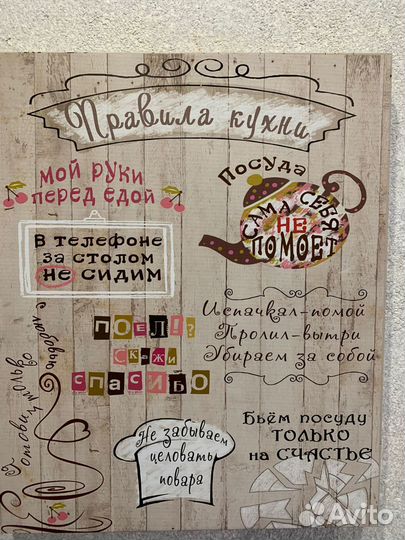 Правила кухни
МОЙ РУКИ
ПЕРЕД ЕДОЙ
ПОСУДА
САМА СЕБЯ
НЕ
ПОМОЕТ
В ТЕЛЕФОНЕ
ЗА СТОЛОМ
НЕ СИДИМ
Испачкал-помой
Пролил-вытри
Убираем за собой
ПОЕЛ!?
СКАЖИ
СПАСИБО
Готовим
только
с любовью
Не забываем
целовать
повара
Бьём посуду
ТОЛЬКО
на СЧАСТЬЕ
Avito